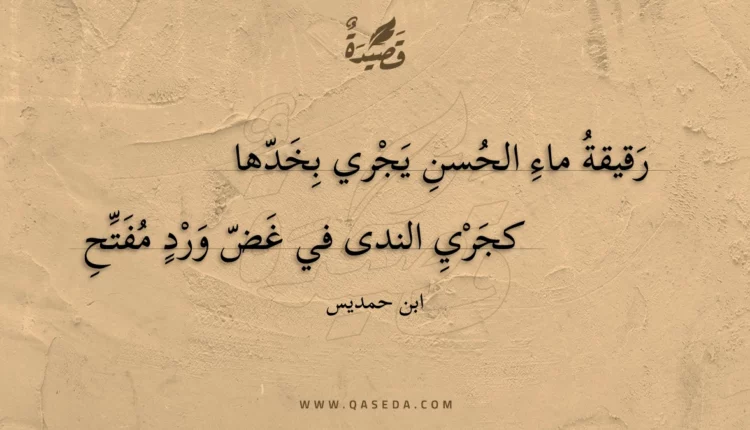 قَصِيدَةٌ
رَقيقةُ ماءِ الحُسنِ يَجْري بِخَدّها
كجَرْيِ الندى في غَضّ وَرْدٍ مُفَتِّحِ
ابن حمديس
WWW.QASEDA.COM